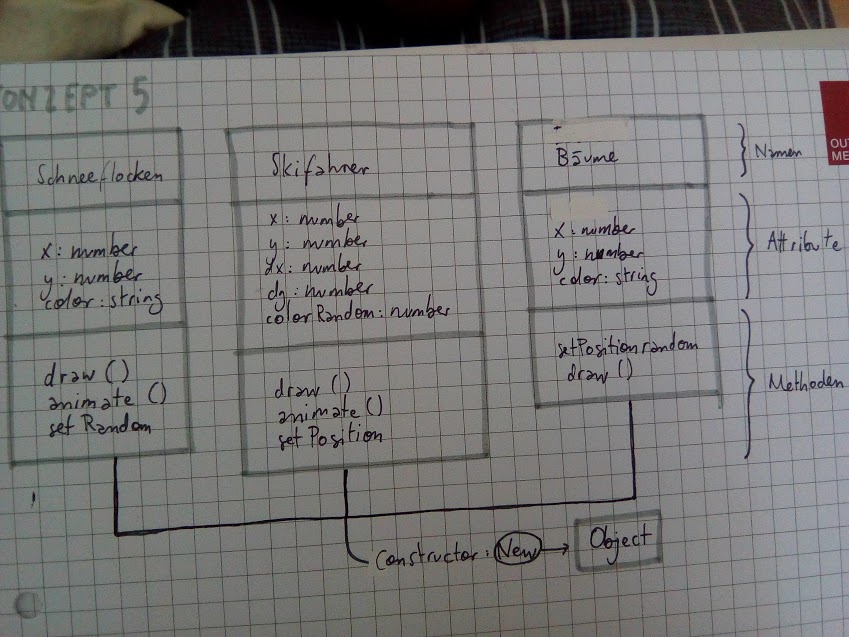 ONZEPT 5
Schneeflocken
x: number
y: number
color: string
draw ()
animate ()
set Random
Skifahrer
x: number
y: number
dx: number
dy: number
colorRandom: number
draw ()
animate ()
set Position
Bäume
x: number
y: number
color: string
setPosition random
draw ()
Namen
Attribute
Methoden
Constructor: New → Object
OU
ME